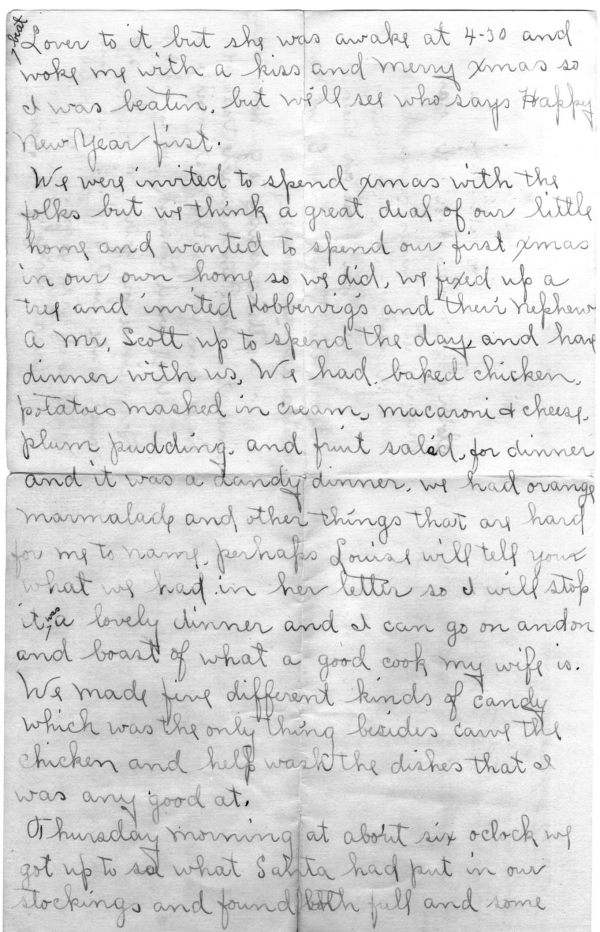 beat
Lover to it but she was awake at 4-30 and
woke me with a kiss and merry xmas so
I was beaten, but we'll see who says Happy
New Year first.
We were invited to spend xmas with the
folks but we think a great dial of our little
home and wanted to spend our first xmas
in our own home so we did, we fixed up a
tree and invited Kobbervig's and their nephew
a Mr. Scott up to spend the day and have
dinner with us, We had baked chicken,
potatoes mashed in cream, macaroni & cheese,
plum pudding, and fruit salad, for dinner
and it was a dandy dinner, we had orange
marmalade and other things that are hard
for me to name, perhaps Louise will tell you
what we had in her letter so I will stop
it was a lovely dinner and I can go on and on
and boast of what a good cook my wife is.
We made five different kinds of candy
which was the only thing besides carve the
chicken and help wash the dishes that I
was any good at.
Thursday morning at about six oclock we
got up to see what Santa had put in our
stockings and found both full and some